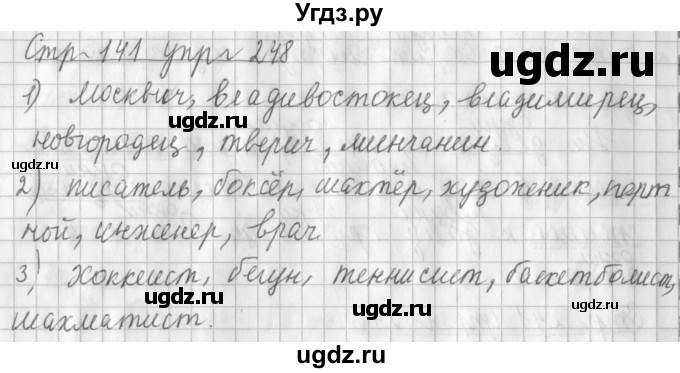 Угдз.ру
Стр 141 упр 248
ugdz.ru
1) Москвич, владивостокец, владимирец,
ugdz.ru
новгородец, тверич, минчанин.
ugdz.ru
ugdz.ru
2) писатель, боксёр, шахтёр, художник, порт
ugdz.ru
ной, инженер, врач.
3) хоккеист, бегун, теннисист, баскетболист,
ugdz.ru
ugdz.ru
шахматист.
ugdz.ru